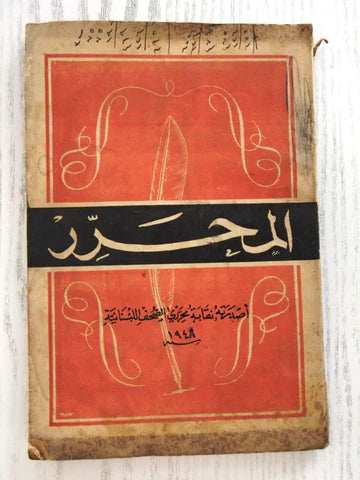 المحرّر
أصدرته نقابة محرري الصحف اللبنانية
سنة ١٩٤٨